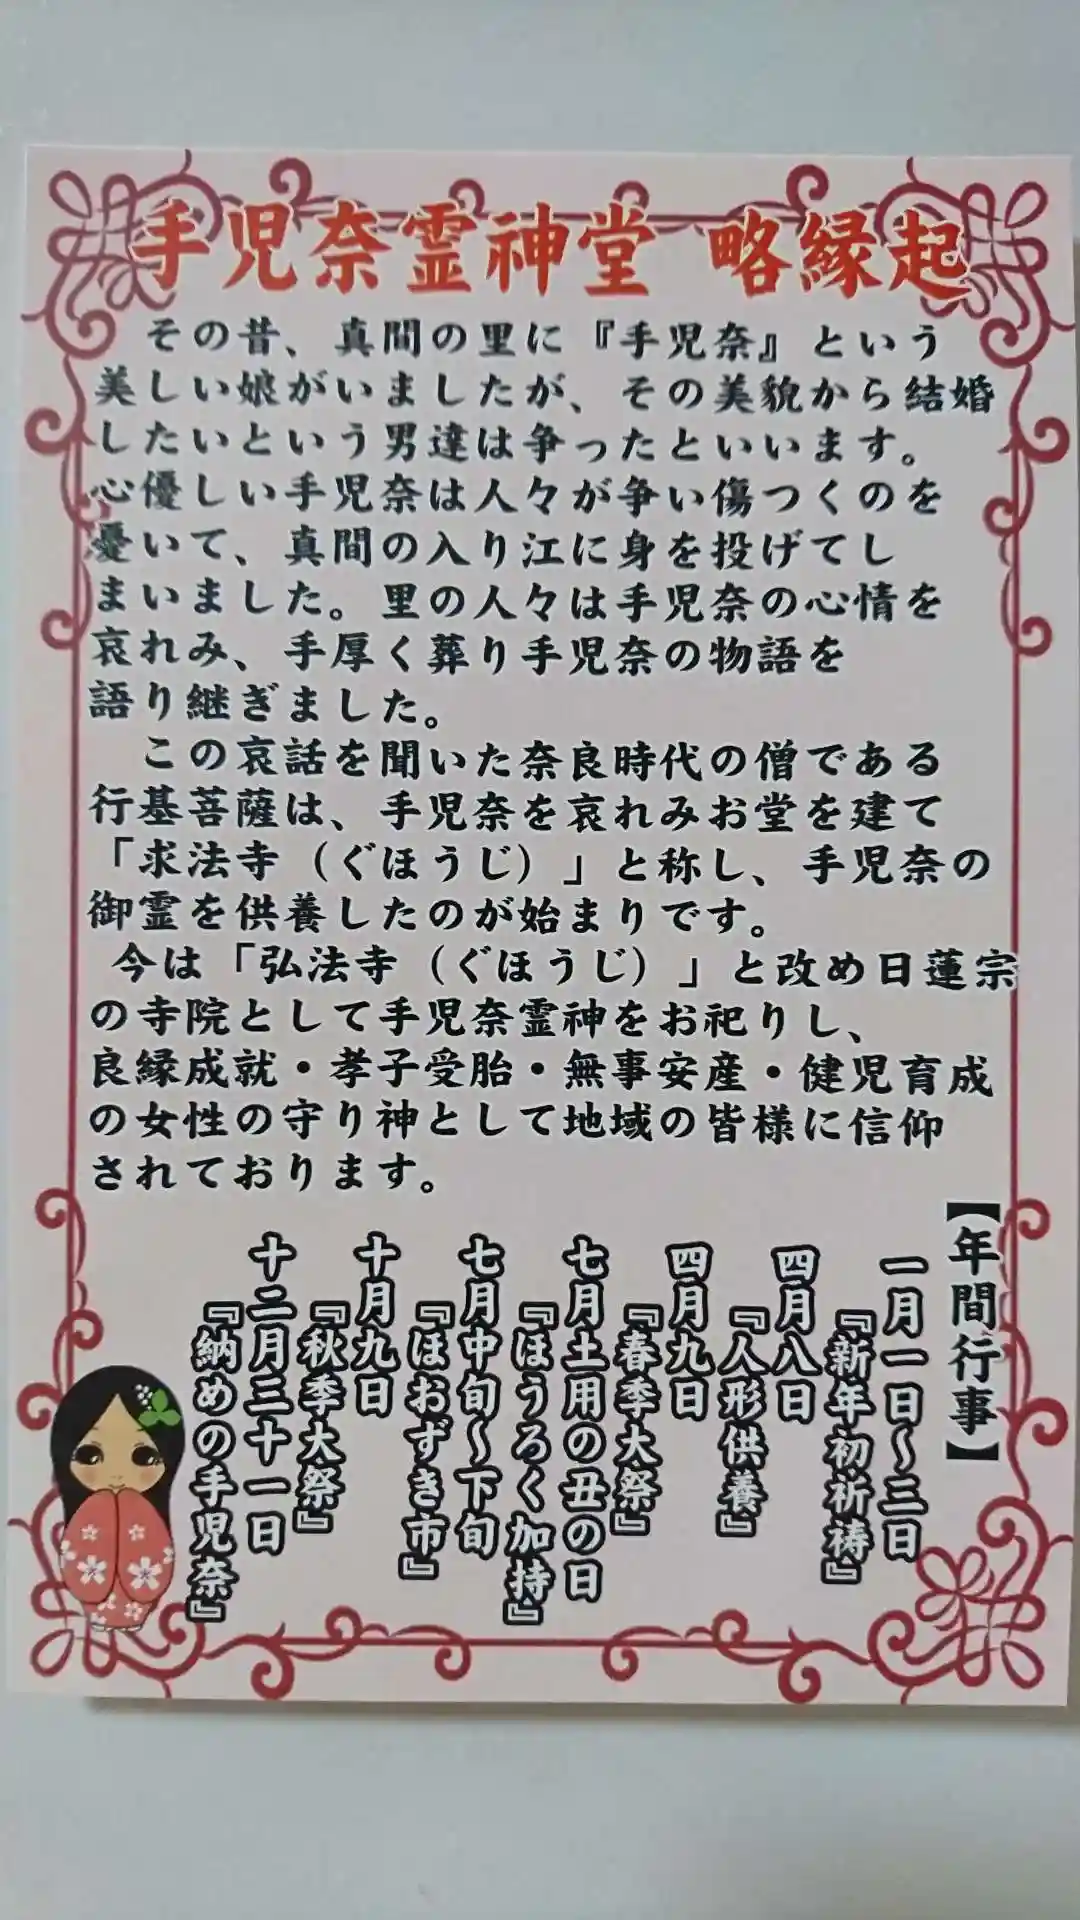 手児奈霊神堂 略縁起
その昔、真間の里に『手児奈』という
美しい娘がいましたが、その美貌から結婚
したいという男達は争ったといいます。
心優しい手児奈は人々が争い傷つくのを
憂いて、真間の入り江に身を投げてし
まいました。里の人々は手児奈の心情を
哀れみ、手厚く葬り手児奈の物語を
語り継ぎました。
この哀話を聞いた奈良時代の僧である
行基菩薩は、手児奈を哀れみお堂を建て
「求法寺（ぐほうじ）」と称し、手児奈の
御霊を供養したのが始まりです。
今は「弘法寺（ぐほうじ）」と改め日蓮宗
の寺院として手児奈霊神をお祀りし、
良縁成就・孝子受胎・無事安産・健児育成
の女性の守り神として地域の皆様に信仰
されております。
【年間行事】
一月一日～三日
『新年初祈祷』
四月八日
『人形供養』
四月九日
『春季大祭』
七月土用の丑の日
『ほうろく加持』
七月中旬～下旬
『ほおずき市』
十月九日
『秋季大祭』
十二月三十一日
『納めの手児奈』